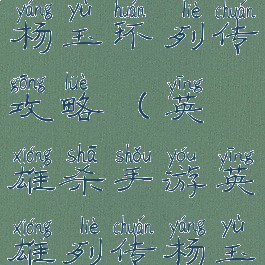 yáng yù huán liè chuán
杨玉环列传
gōng lüè yīng
攻略(英
xióng shā shǒu yóu yīng
雄杀手游英
xióng liè chuán yáng yù
雄列传杨玉